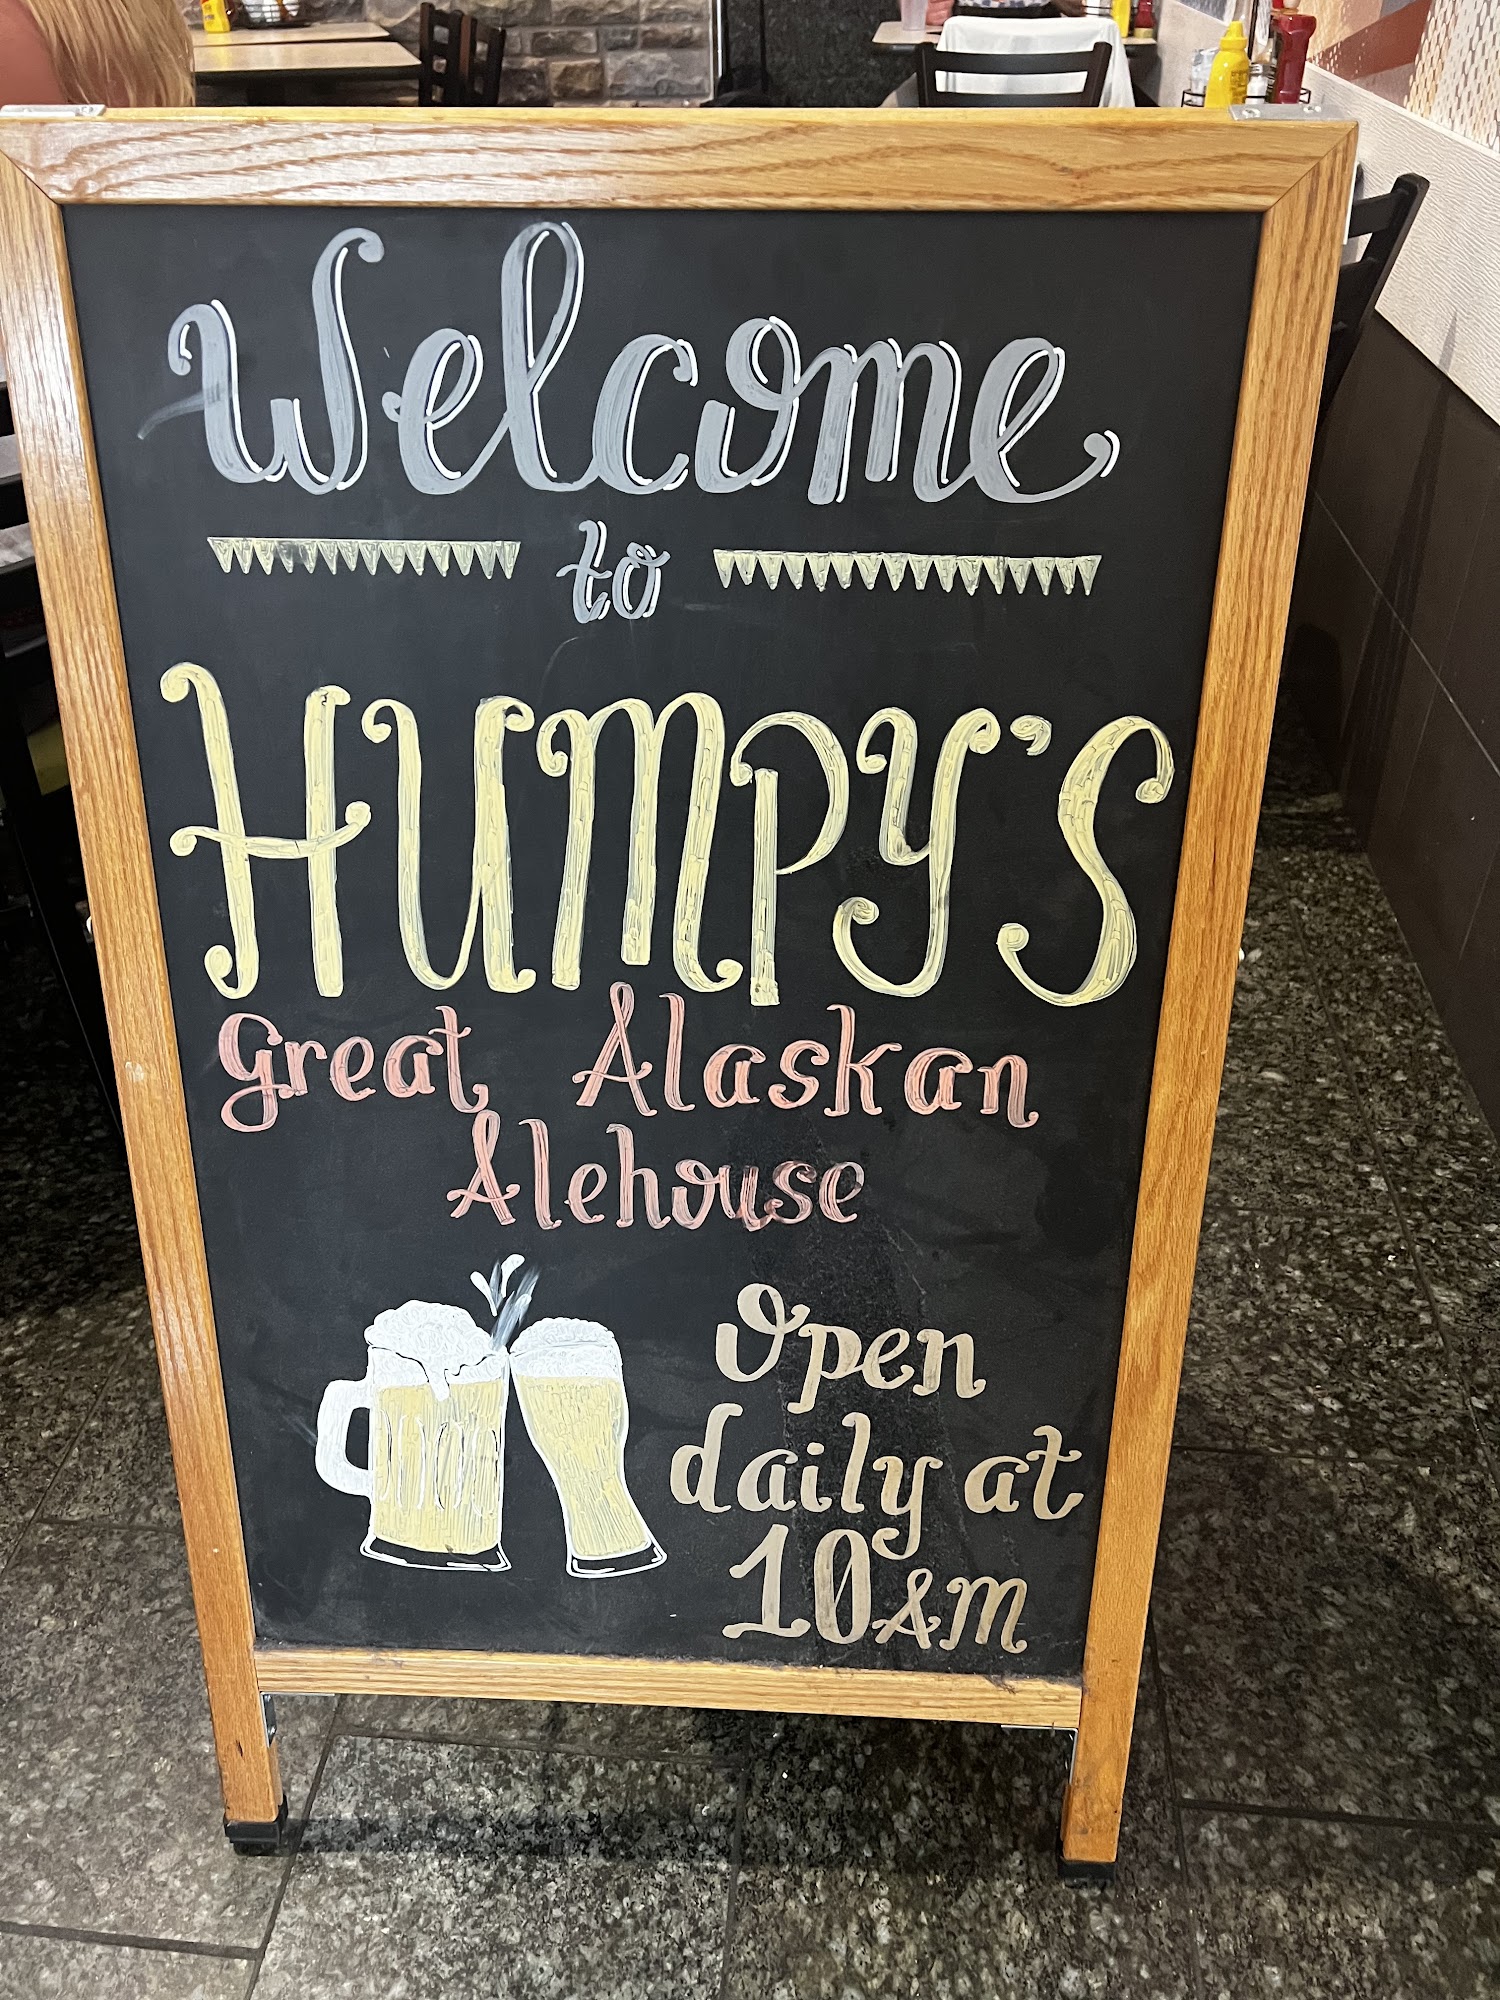 Welcome
to
HUMPY'S
Great Alaskan
Alehouse
Open
daily at
10AM